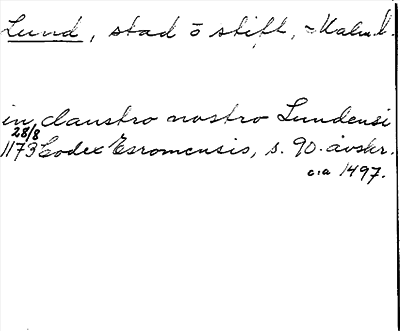 Lund, stad ö stift, Malm. l.
in claustro nostro Lundensi
28/8
1173 Codex Esromensis, s. 90. avskr.
c:a 1497.